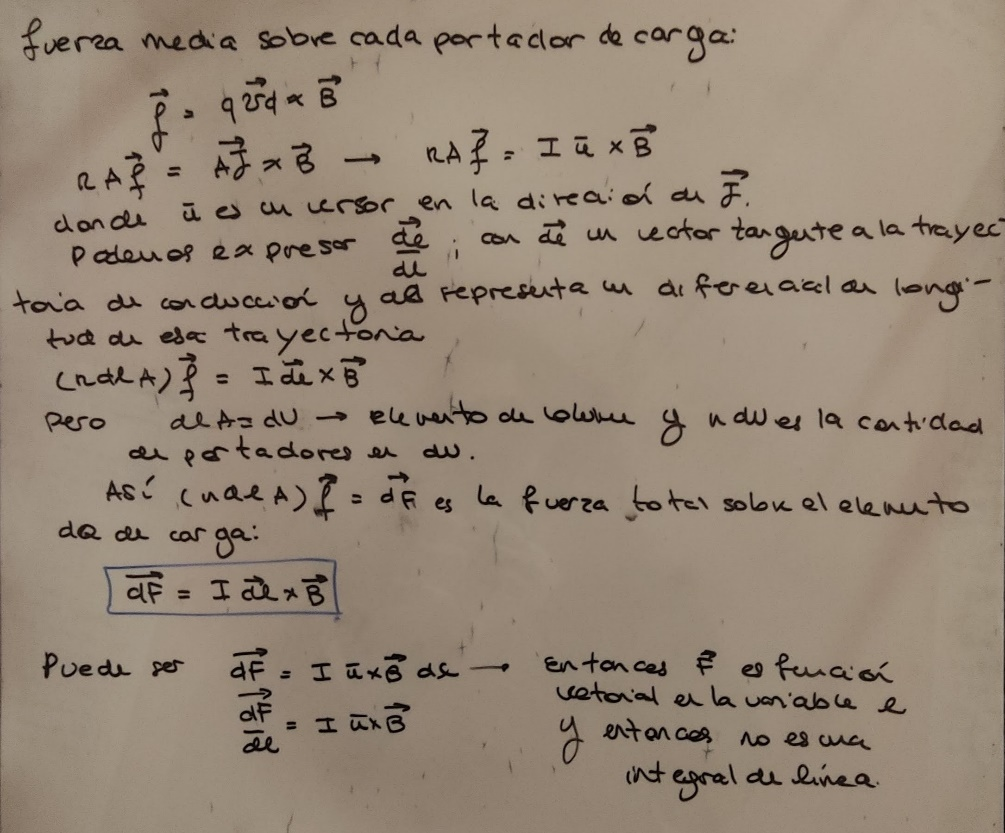 fuerza media sobre cada portador de carga:
f⃗ = q v⃗d × B⃗
n A f⃗ = A J⃗ × B⃗ → n A f⃗ = I ū × B⃗
donde ū es un versor en la dirección de J⃗.
Podemos expresar d⃗l/dl ; con d⃗l un vector tangente a la trayec
toria de conducción y dl representa un diferencial de longi-
tud de esa trayectoria
(n dl A) f⃗ = I d⃗l × B⃗
Pero dl A = dV → elemento de volumen y n dV es la cantidad
de portadores en dV.
Así (n dl A) f⃗ = d⃗F es la fuerza total sobre el elemento
dQ de carga:
d⃗F = I d⃗l × B⃗
Puede ser d⃗F = I ū × B⃗ dl → Entonces F⃗ es función
vectorial en la variable l
d⃗F/dl = I ū × B⃗
y entonces no es una
integral de línea.